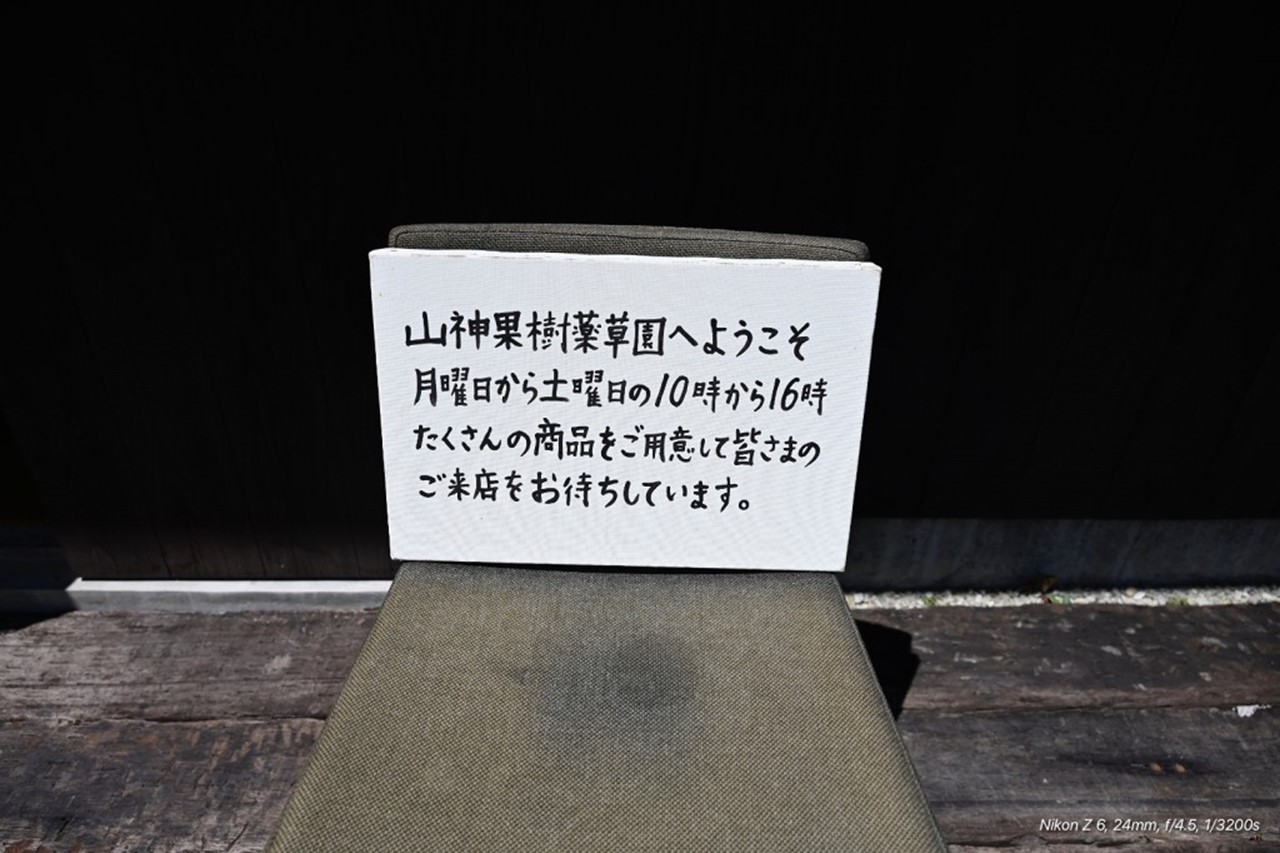 山神果樹薬草園へようこそ
月曜日から土曜日の10時から16時
たくさんの商品をご用意して皆さまの
ご来店をお待ちしています。
Nikon Z 6, 24mm, f/4.5, 1/3200s